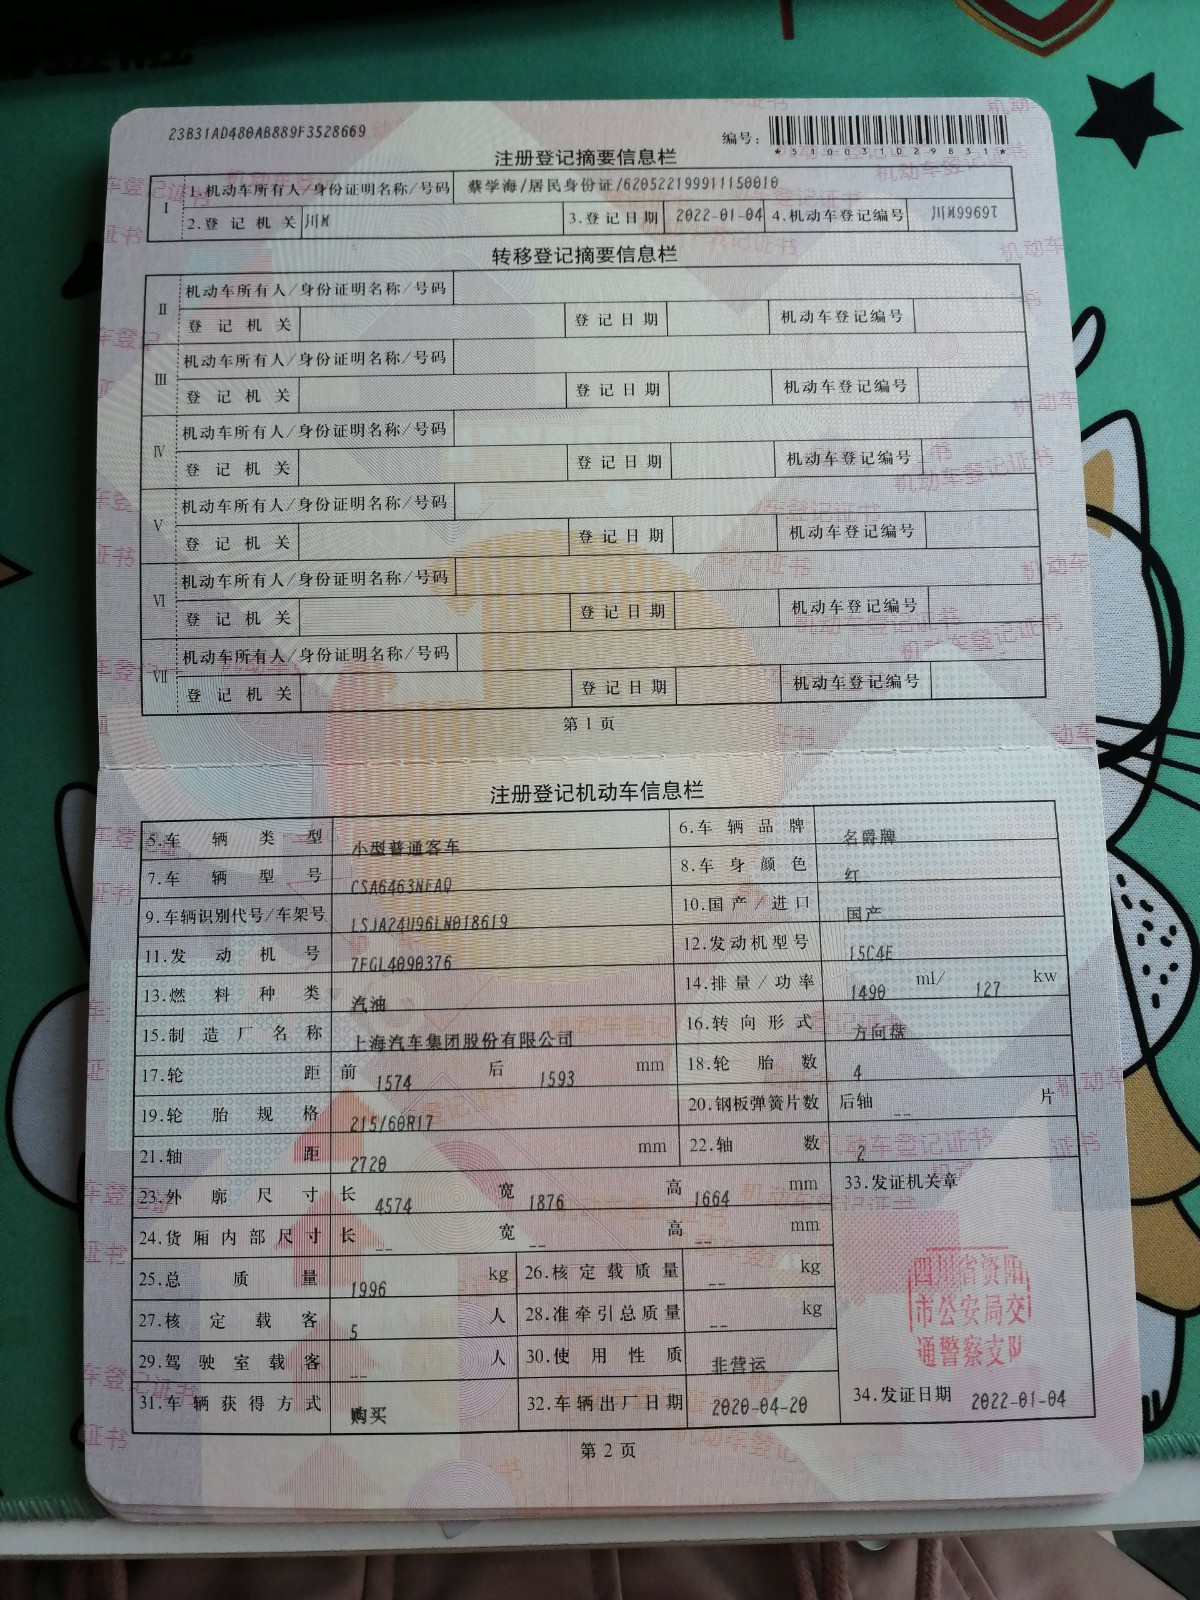 23B31AD480AB889F3528669
编号:
*510031029831*
注册登记摘要信息栏
I 1.机动车所有人/身份证明名称/号码 蔡学海/居民身份证/620522199911150010
2.登记机关 川M 3.登记日期 2022-01-04 4.机动车登记编号
转移登记摘要信息栏
II 机动车所有人/身份证明名称/号码
登记机关 登记日期 机动车登记编号
III 机动车所有人/身份证明名称/号码
登记机关 登记日期 机动车登记编号
IV 机动车所有人/身份证明名称/号码
登记机关 登记日期 机动车登记编号
V 机动车所有人/身份证明名称/号码
登记机关 登记日期 机动车登记编号
VI 机动车所有人/身份证明名称/号码
登记机关 登记日期 机动车登记编号
VII 机动车所有人/身份证明名称/号码
登记机关 登记日期 机动车登记编号
第1页
注册登记机动车信息栏
5.车辆类型 小型普通客车 6.车辆品牌 名爵牌
7.车辆型号 CSA6463NEAQ 8.车身颜色 红
9.车辆识别代号/车架号 LSJA24U96LN018619 10.国产/进口 国产
11.发动机号 7FGL4090376 12.发动机型号 15C4E
13.燃料种类 汽油 14.排量/功率 1490 ml/ 127 kw
15.制造厂名称 上海汽车集团股份有限公司 16.转向形式 方向盘
17.轮距 前 1574 后 1593 mm 18.轮胎数 4
19.轮胎规格 215/60R17 20.钢板弹簧片数 后轴 -- 片
21.轴距 2720 mm 22.轴数 2
23.外廓尺寸 长 4574 宽 1876 高 1664 mm 33.发证机关章
24.货厢内部尺寸 长 -- 宽 -- 高 -- mm
25.总质量 1996 kg 26.核定载质量 -- kg
四川省资阳
市公安局交
通警察支队
27.核定载客 5 人 28.准牵引总质量 -- kg
29.驾驶室载客 -- 人 30.使用性质 非营运
31.车辆获得方式 购买 32.车辆出厂日期 2020-04-20 34.发证日期 2022-01-04
第2页